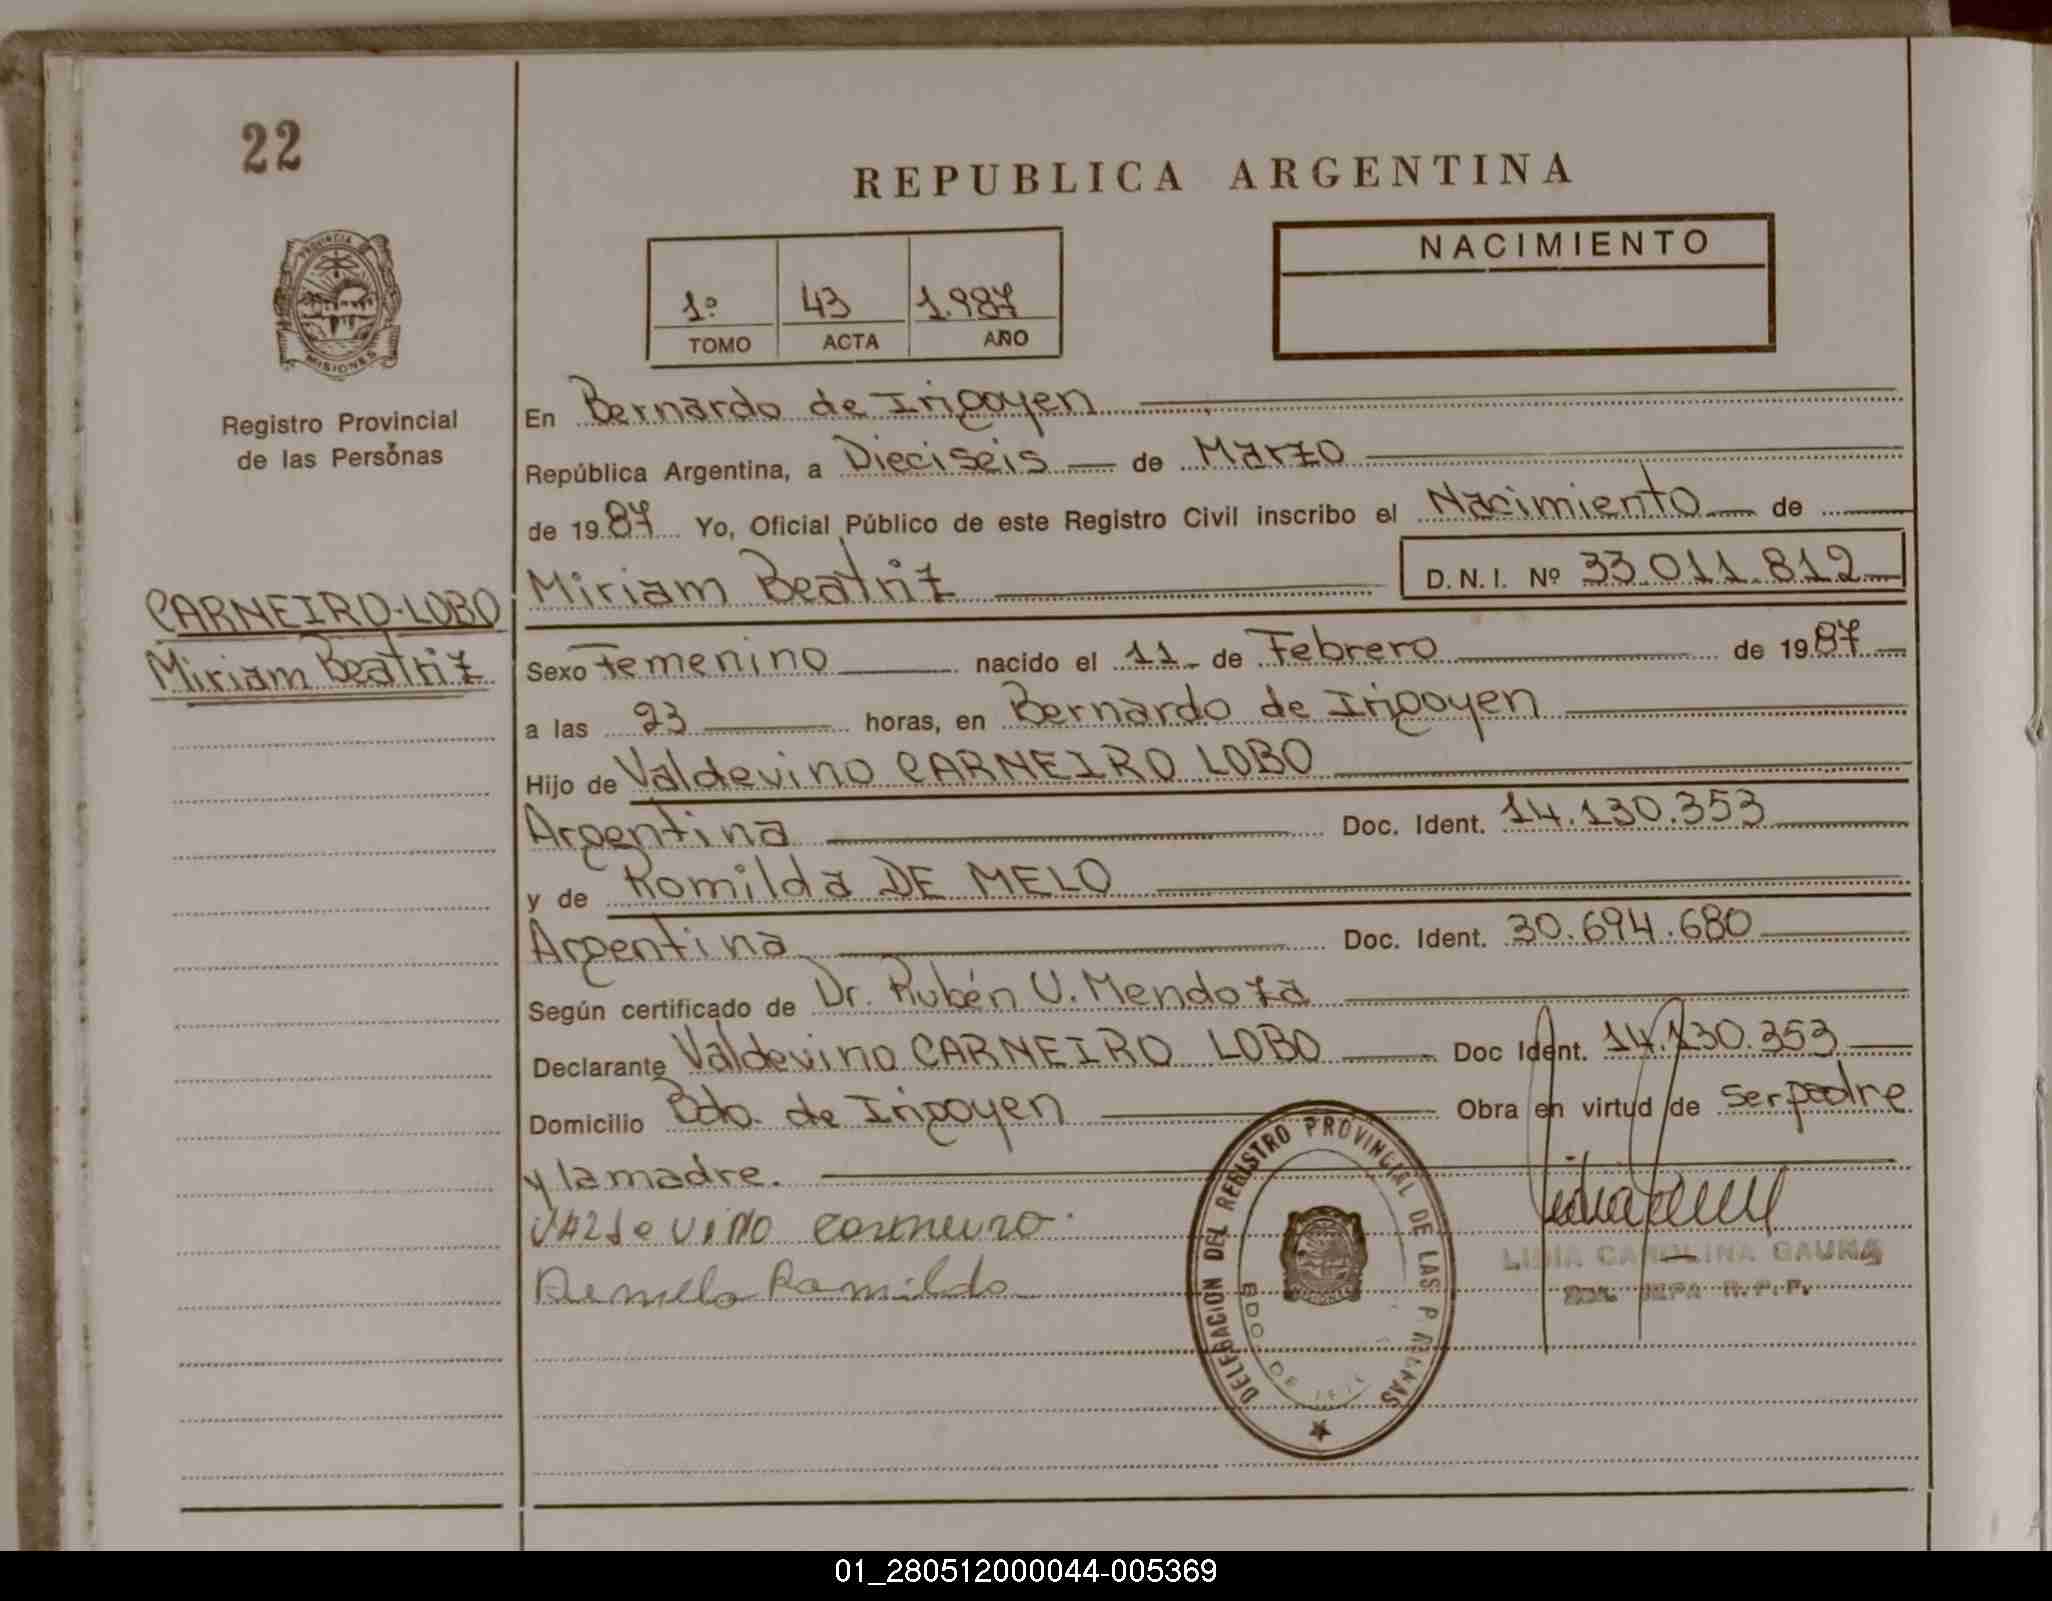 22
REPUBLICA ARGENTINA
NACIMIENTO
PROVINCIA DE
MISIONES
1º 43 1.987
TOMO ACTA AÑO
Registro Provincial
de las Personas
En Bernardo de Irigoyen
República Argentina, a Dieciseis de Marzo
de 1987 Yo, Oficial Público de este Registro Civil inscribo el Nacimiento de
Miriam Beatriz D.N.I. Nº 33.011.812
CARNEIRO-LOBO
Miriam Beatriz
Sexo Femenino nacido el 11 de Febrero de 1987
a las 23 horas, en Bernardo de Irigoyen
Hijo de Valdevino CARNEIRO LOBO
Argentina Doc. Ident. 14.130.353
y de Romilda DE MELO
Argentina Doc. Ident. 30.694.680
Según certificado de Dr. Rubén U. Mendoza
Declarante Valdevino CARNEIRO LOBO Doc Ident. 14.130.353
Domicilio Bdo. de Irigoyen Obra en virtud de ser padre
y la madre.
VALdeviNo carneiro
Demelo Romilda
DELEGACION DEL REGISTRO PROVINCIAL DE LAS P
BDO DE
LIDIA CAROLINA GAUNA
R.P.P.
01_280512000044-005369